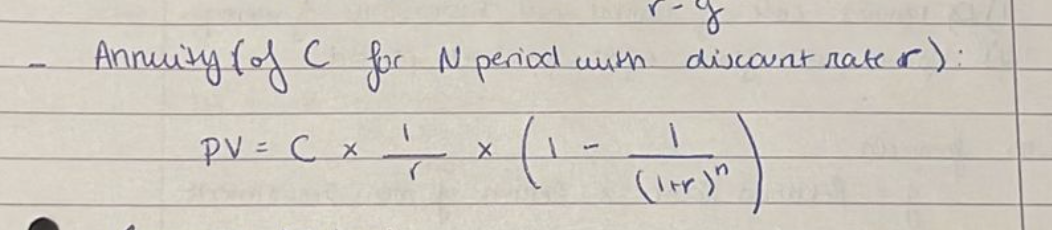 r-g
- Annuity (of C for N period with discount rate r):
PV = C × 1/r × (1 - 1/(1+r)^n)